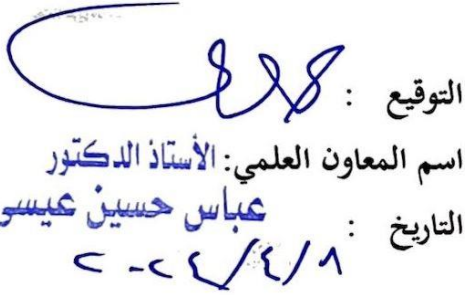 التوقيع :
اسم المعاون العلمي: الأستاذ الدكتور
عباس حسين عيسى
التاريخ :
٢٠٢٤/٤/٨